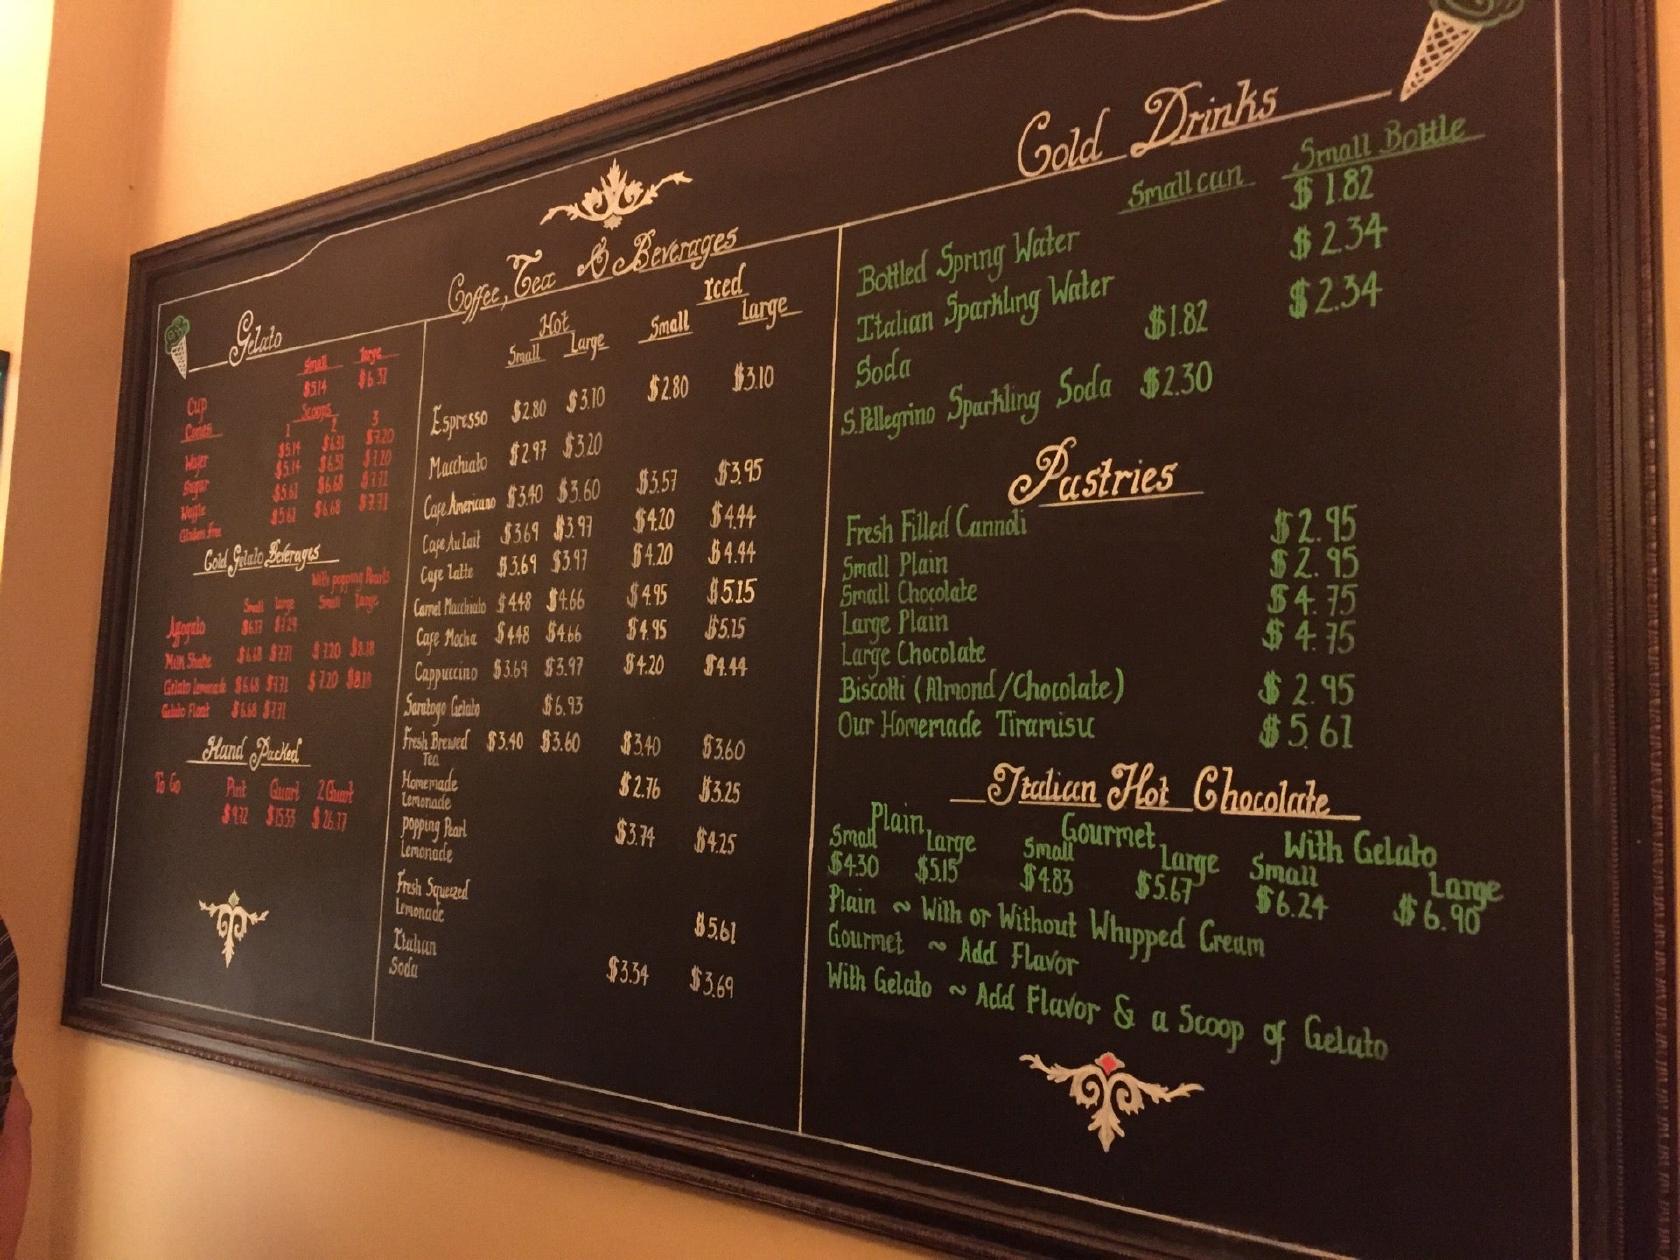 Gelato
Small large
Cup $5.14 $6.31
Cones Scoops
1 2 3
Wafer $5.14 $6.31 $7.20
Sugar $5.14 $6.31 $7.20
Waffle $5.61 $6.68 $7.71
Gluten Free $5.61 $6.68 $7.71
Cold Gelato Beverages
With popping Pearls
Small large Small large
Affogato $6.17 $7.29
Milk Shake $6.68 $7.71 $7.20 $8.18
Gelato Lemonade $6.68 $7.71 $7.20 $8.18
Gelato Float $6.68 $7.71
Hand Packed
To Go Pint Quart 2 Quart
$9.72 $15.33 $26.17
Coffee, Tea & Beverages
Hot Iced
Small Large Small large
Espresso $2.80 $3.10 $2.80 $3.10
Macchiato $2.97 $3.20
Cafe Americano $3.40 $3.60 $3.57 $3.95
Cafe Au Lait $3.69 $3.97 $4.20 $4.44
Cafe Latte $3.69 $3.97 $4.20 $4.44
Carmel Macchiato $4.48 $4.66 $4.95 $5.15
Cafe Mocha $4.48 $4.66 $4.95 $5.15
Cappuccino $3.69 $3.97 $4.20 $4.44
Saratogo Gelato $6.93
Fresh Brewed $3.40 $3.60 $3.40 $3.60
Tea
Homemade $2.76 $3.25
Lemonade
popping Pearl $3.74 $4.25
Lemonade
Fresh Squeezed
Lemonade $5.61
Italian
Soda $3.34 $3.69
Cold Drinks
Small can Small Bottle
Bottled Spring Water $1.82
Italian Sparkling Water $2.34
Soda $1.82 $2.34
S.Pellegrino Sparkling Soda $2.30
Pastries
Fresh Filled Cannoli
Small Plain $2.95
Small Chocolate $2.95
Large Plain $4.75
Large Chocolate $4.75
Biscotti (Almond/Chocolate) $2.95
Our Homemade Tiramisu $5.61
Italian Hot Chocolate
Plain Gourmet With Gelato
Small large Small large Small Large
$4.30 $5.15 $4.83 $5.67 $6.24 $6.90
Plain ~ With or Without Whipped Cream
Gourmet ~ Add Flavor
With Gelato ~ Add Flavor & a Scoop of Gelato